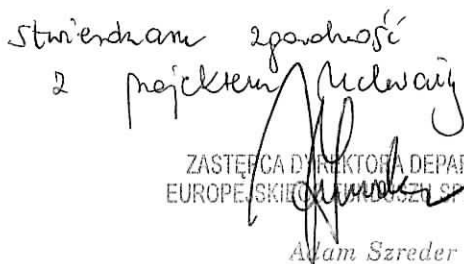 Stwierdzam zgodność
z projektem Uchwały
ZASTĘPCA DYREKTORA DEPAR
EUROPEJSKIEGO FUNDUSZU SP
Adam Szreder